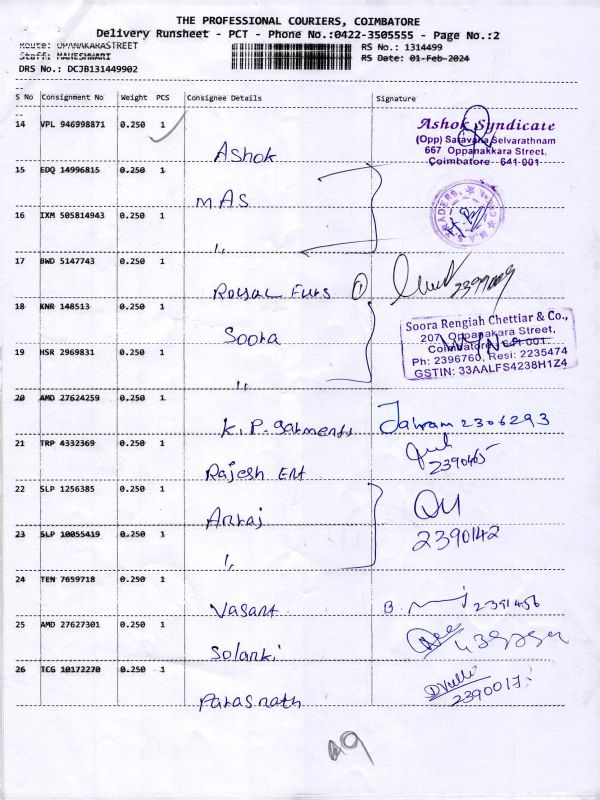 THE PROFESSIONAL COURIERS, COIMBATORE
Delivery Runsheet - PCT - Phone No.:0422-3505555 - Page No.:2
Route: OPANAKARASTREET
RS No.: 1314499
Staff: MAHESHMARI
RS Date: 01-Feb-2024
DRS No.: DCJB131449902
S No Consignment No Weight PCS Consignee Details Signature
14 VPL 946998871 0.250 1
Ashok
Ashok Syndicate
(Opp) Saravana Selvarathnam
667 Oppanakkara Street,
Coimbatore 641 001
15 EDQ 14996815 0.250 1
M.AS
16 IXM 505814943 0.250 1
"
17 BWD 5147743 0.250 1
Royal Furs 1
2399009
18 KNR 148513 0.250 1
Soora
Soora Rengiah Chettiar & Co.,
207, Oppanakara Street,
Coimbatore 641 001.
Ph: 2396760, Resi: 2235474
GSTIN: 33AALFS4238H1Z4
19 HSR 2969831 0.250 1
"
20 AMD 27624259 0.250 1
K.P. Garments
2306293
21 TRP 4332369 0.250 1
Rajesh Ent
2390465
22 SLP 1256385 0.250 1
Anraj
23 SLP 10055419 0.250 1
"
2390142
24 TEN 7659718 0.250 1
Vasant
B. 2391456
25 AMD 27627301 0.250 1
Solanki
26 TCG 10172270 0.250 1
Parasnath
2390017